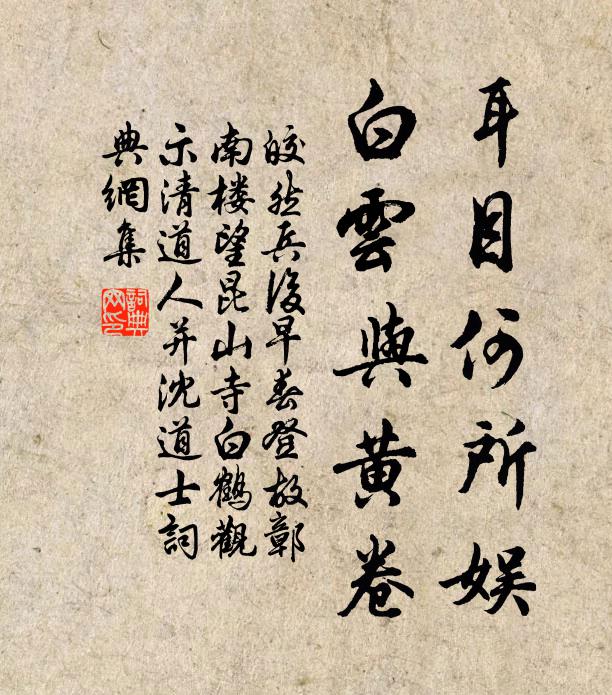 耳目何所娱
白雲與黄卷
皎然兵後早春登故鄣
南楼望昆山寺白鶴觀
示清道人并沈道士詞
典網集
詞典
网印